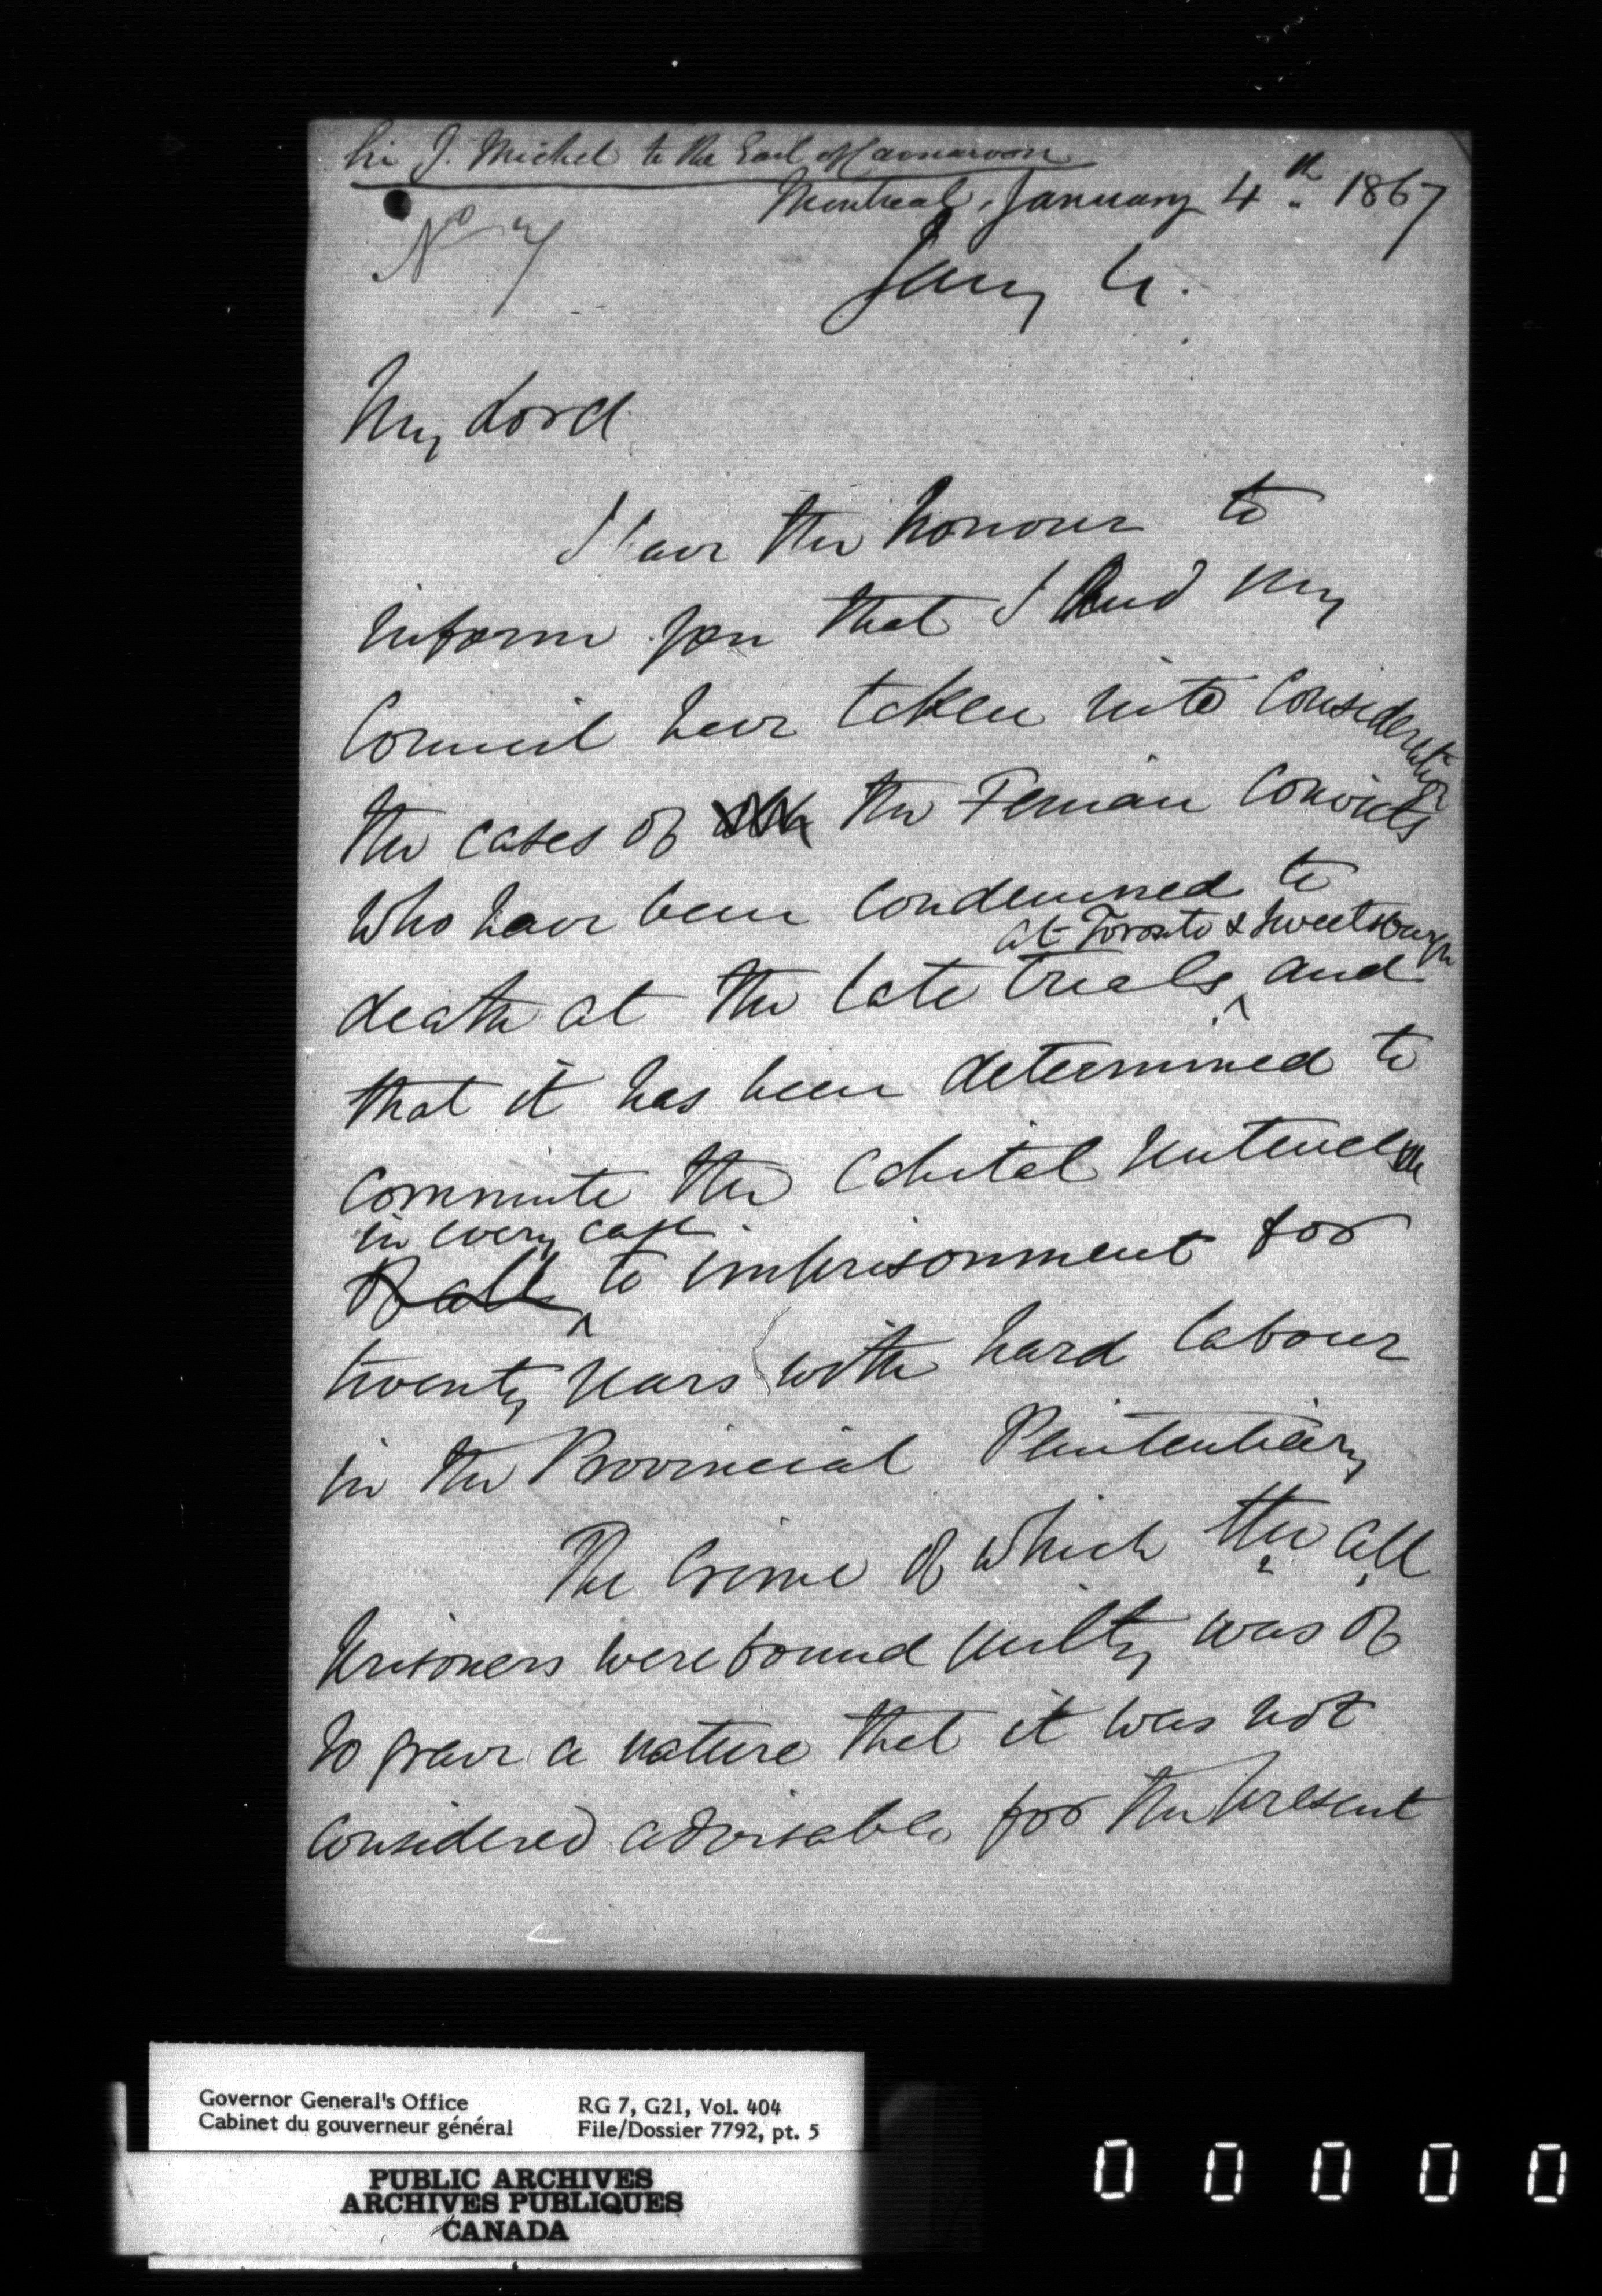 Sir J. Michel to the Earl of Carnarvon
Montreal, January 4th 1867
No 7
Jany 4.
My Lord
I have the honour to
inform you that I and my
Council have taken into consideration
the cases of the Fenian Convicts
who have been condemned to
at Toronto & Sweetsburgh
death at the late trials, and
that it has been determined to
commute the capital sentence
in every case
of all to imprisonment for
twenty years with hard labour
in the Provincial Penitentiary
The crime of which the all
prisoners were found guilty was of
so grave a nature that it was not
considered advisable for the present
Governor General's Office
Cabinet du gouverneur général
RG 7, G21, Vol. 404
File/Dossier 7792, pt. 5
PUBLIC ARCHIVES
ARCHIVES PUBLIQUES
CANADA
0 0 0 0 0